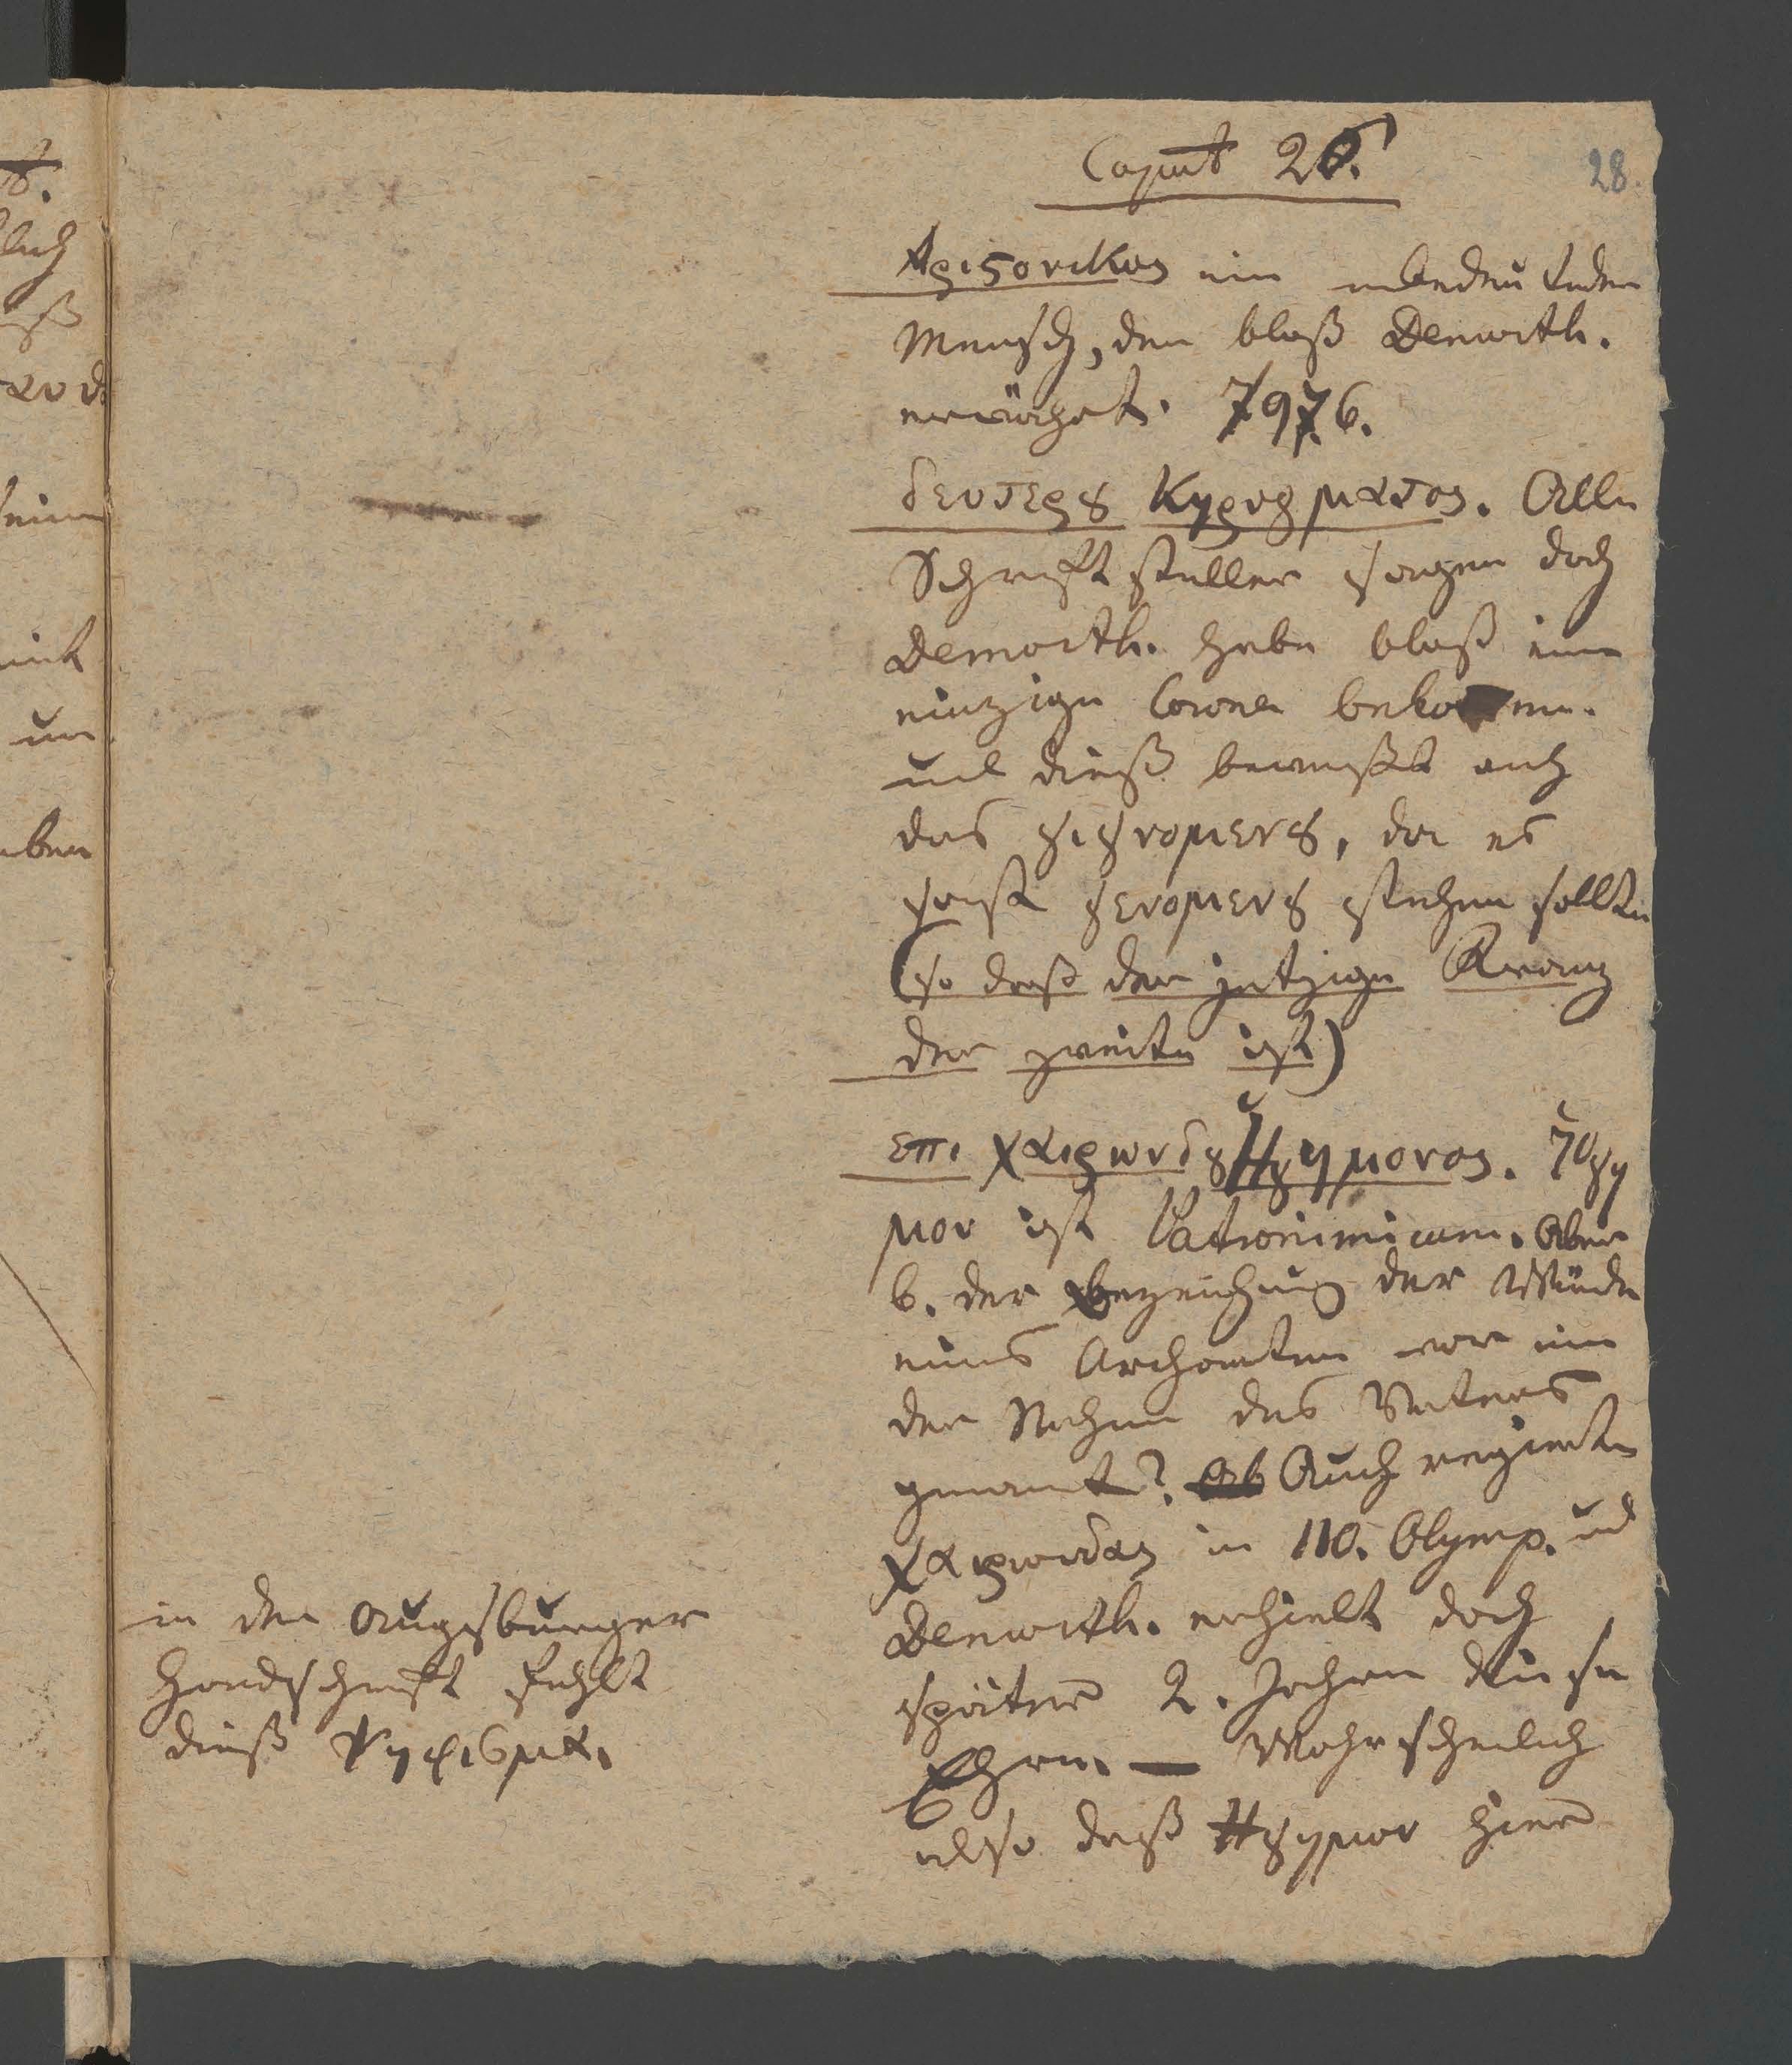 Caput 26.
28.
Αριϛονικος ein unbedeutender
Mensch, den bloß Demosth.
erwähnt. 797.6.
δευτερȣ Κηρυγματος. Alle
Schriftsteller sagen doch
Demosth. habe bloß eine
einzige Corona bekommen.
und dieß beweißt auch
das γιγνομενȣ, da es
sonst γενομενȣ stehen sollte
(so daß der jetzige Kranz
der zweite ist)
επι χαιρωνδȣ Ηγημονος. Ηγη
μον ist Patronimicum. Aber
b. der Bezeichnung der Würde
eines Archonten war nie
der Nahme des Vaters
genannt? Ab Auch regierte
χαιρωνδας in 110. Olymp. und
Demosth. erhielt doch
später 2. Jahre diese
Ehren. — Wahrscheinlich
also daß Ηγημον hier
in der Augsburger
Handschrift fehlt
dieß Ψηφισμα.